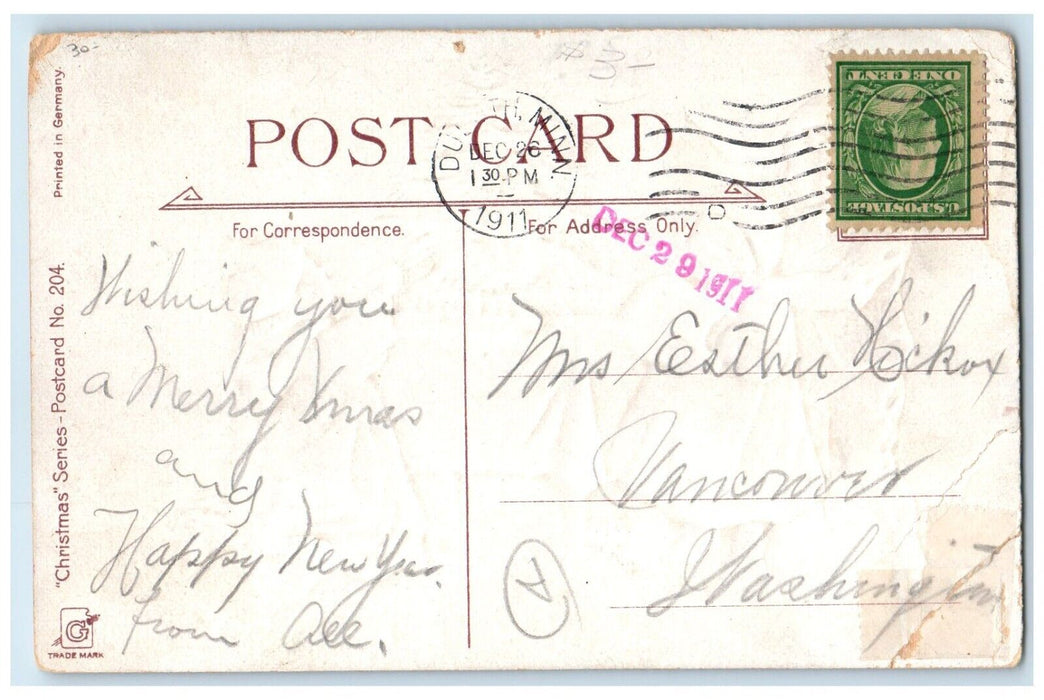 30-
$ 3-
Printed in Germany.
"Christmas" Series - Postcard No. 204.
G
TRADE MARK
POST CARD
DULUTH, MINN
DEC 26
1 30 PM
1911
D
ONE CENT
U.S. POSTAGE
For Correspondence.
For Address Only.
DEC 29 1911
Wishing you
a Merry Xmas
and
Happy New Year.
from All.
Mrs Esther Hickox
Vancouver
Washington